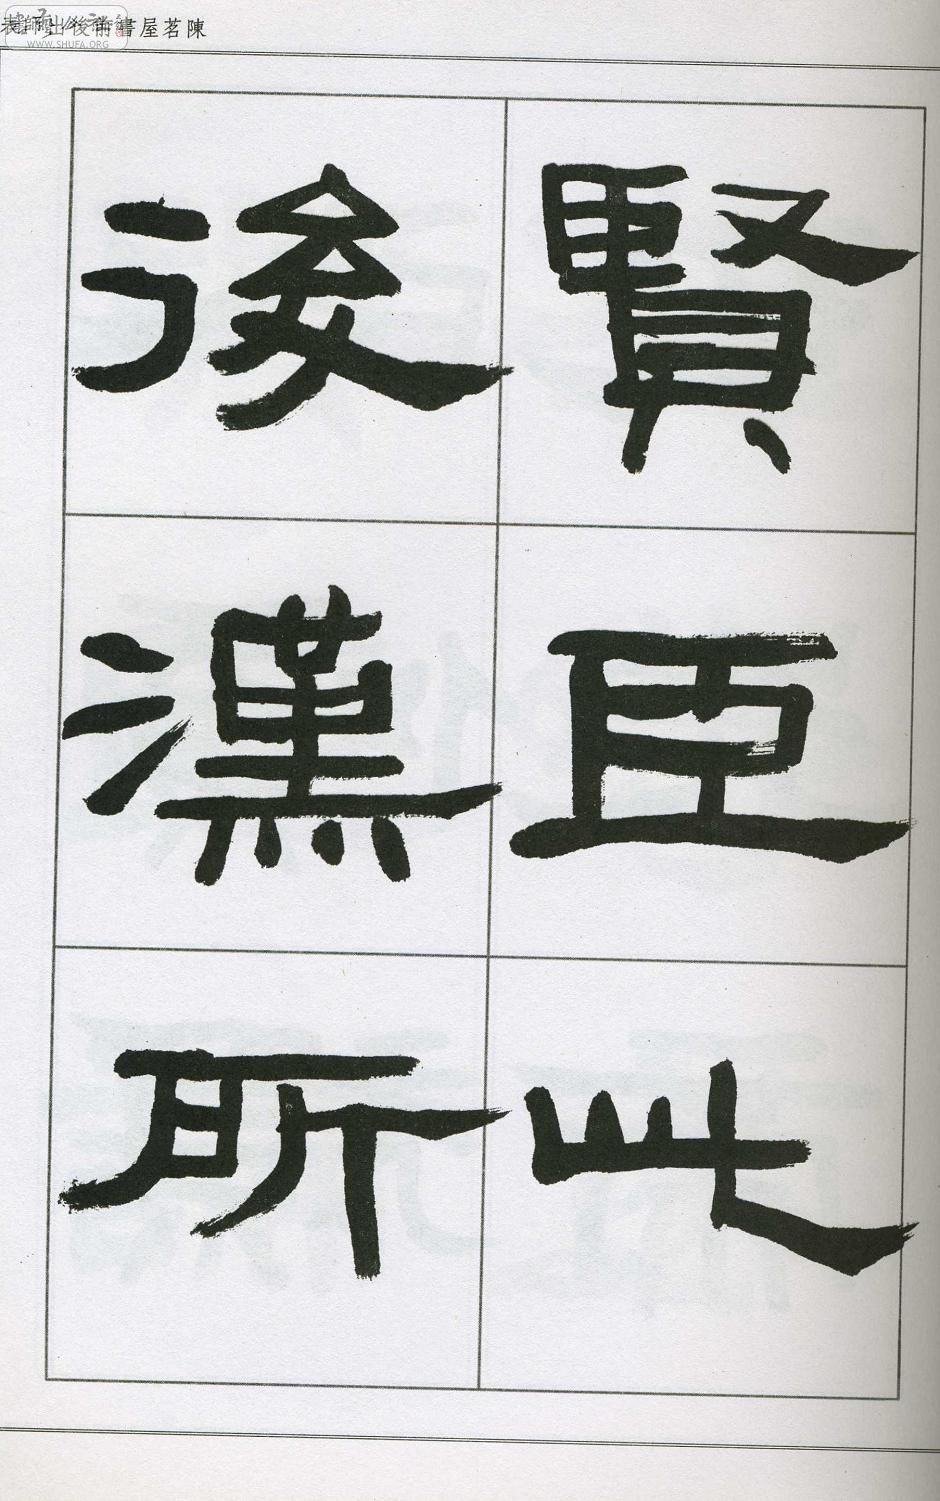 陳茗屋書前後出師表
WWW.SHUFA.ORG
賢臣此
後漢所